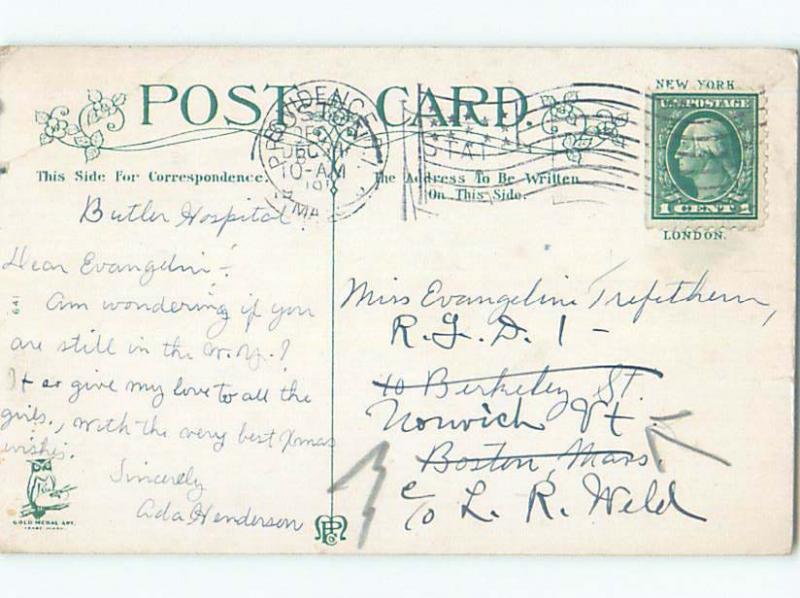 POST CARD.
PROVIDENCE
DEC
10-AM
191
MA
NEW YORK
U.S. POSTAGE
1 CENT
LONDON.
This Side For Correspondence.
The Address To Be Written
On This Side.
Butler Hospital
Dear Evangelin:-
Am wondering if you
are still in the
If so give my love to all the
girls., with the very best Xmas
wishes.
Sincerely
Ada Henderson
641
GOLD MEDAL ART.
TRADE MARK
Miss Evangeline Trefethern,
R.F.D. 1 -
10 Berkeley St.
Norwich Vt.
Boston, Mass.
c/o L. R. Weld